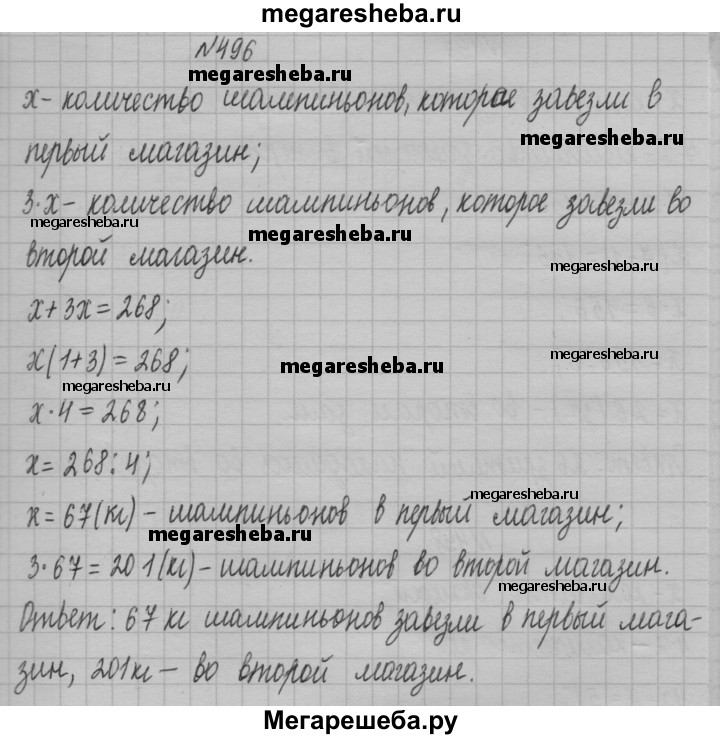 megaresheba.ru
№496
megaresheba.ru
x - количество шампиньонов, которое завезли в
megaresheba.ru
первый магазин;
3·x - количество шампиньонов, которое завезли во
megaresheba.ru
megaresheba.ru
второй магазин.
megaresheba.ru
x + 3x = 268;
megaresheba.ru
x(1+3) = 268;
megaresheba.ru
megaresheba.ru
x·4 = 268;
x = 268:4;
megaresheba.ru
x = 67(кг) - шампиньонов в первый магазин;
megaresheba.ru
3·67 = 201(кг) - шампиньонов во второй магазин.
megaresheba.ru
Ответ: 67 кг шампиньонов завезли в первый мага-
зин, 201кг - во второй магазин.
Мегарешеба.ру